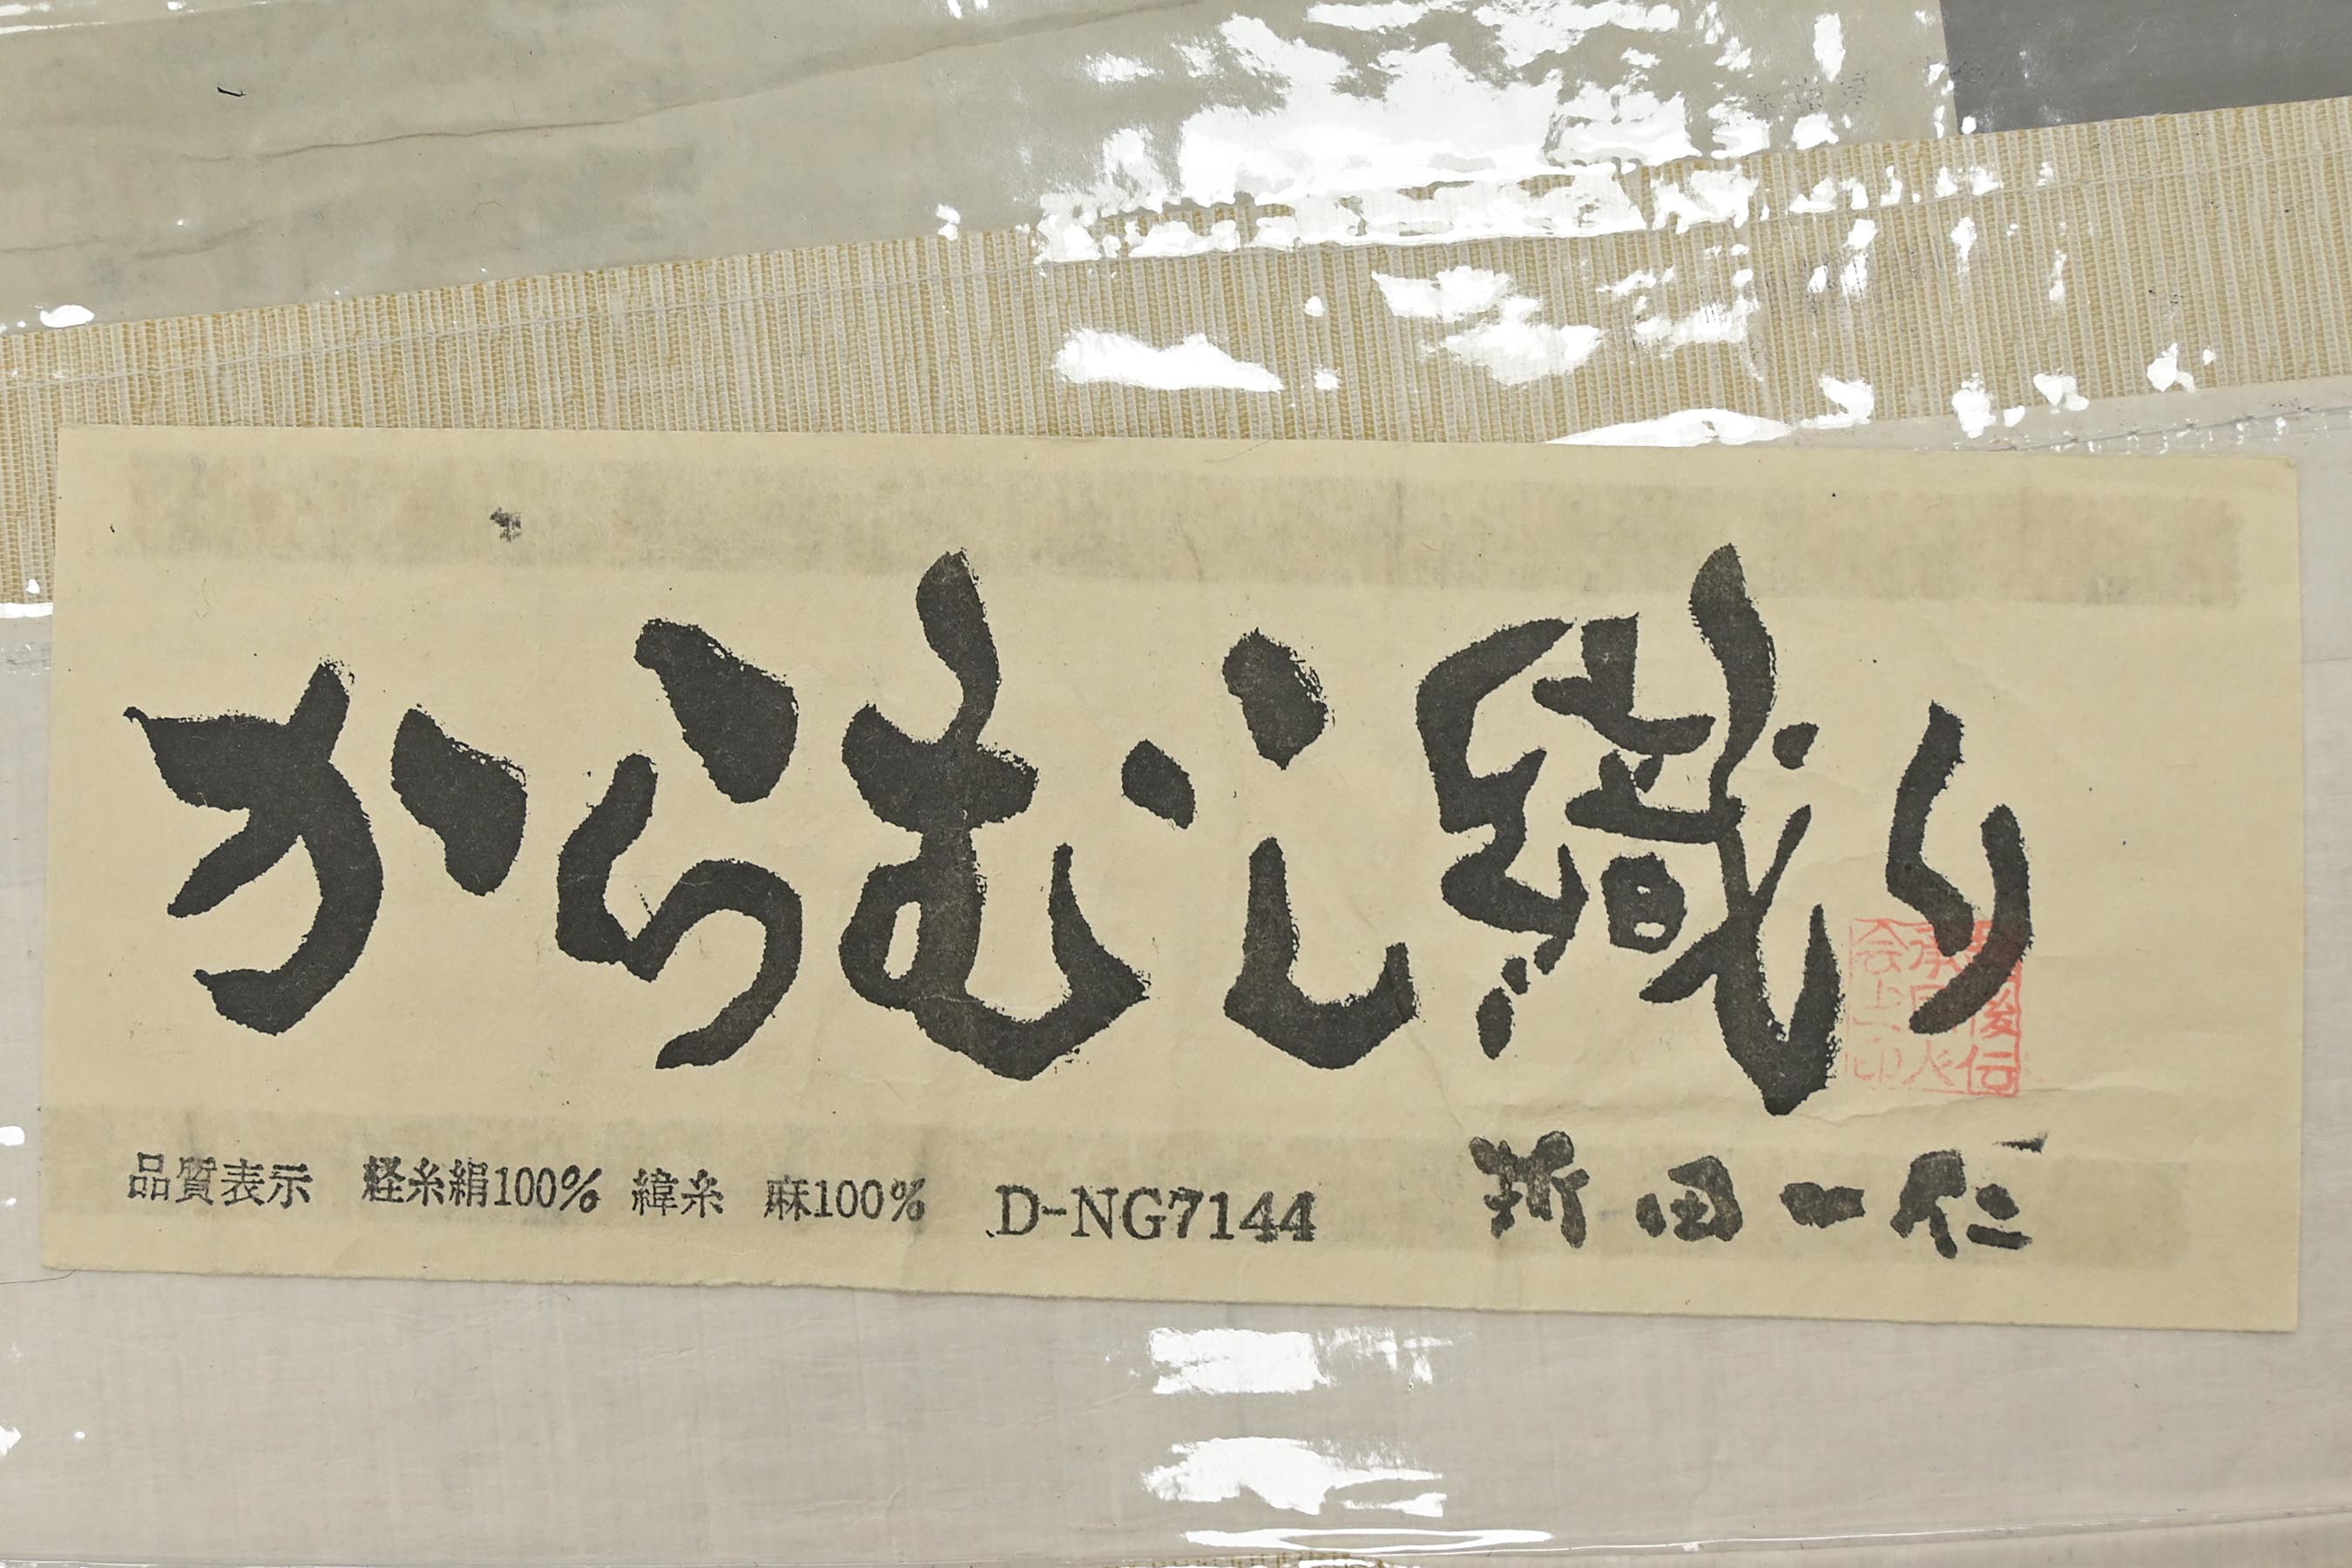 からむし織り
品質表示 経糸絹100% 緯糸 麻100% D-NG7144 新田一仁